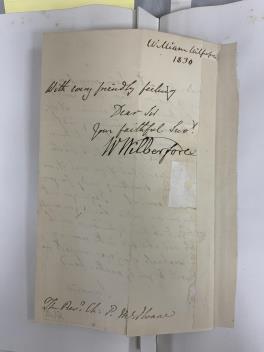 William Wilberforce
1830
With every friendly feeling
Dear Sir
Your faithful Servt.
W Wilberforce
The Revd. Ch: P. McIlvaine